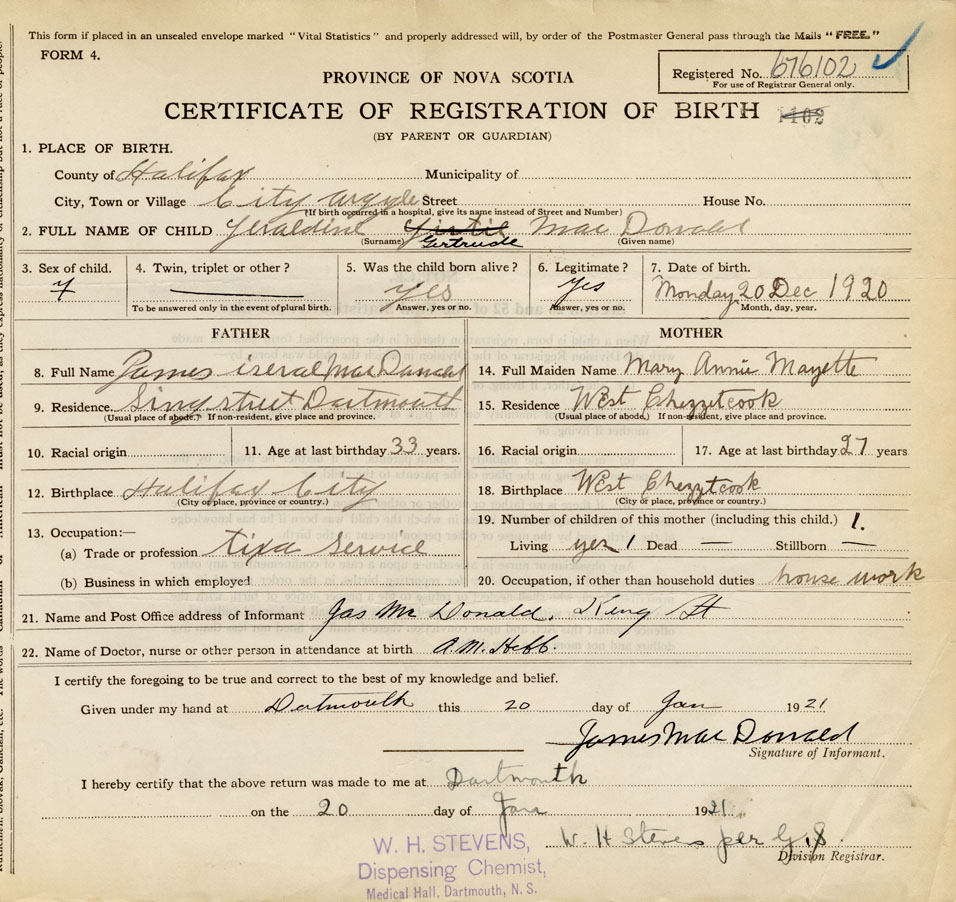 This form if placed in an unsealed envelope marked "Vital Statistics" and properly addressed will, by order of the Postmaster General pass through the Mails "FREE."
FORM 4.
PROVINCE OF NOVA SCOTIA
Registered No. 676102
For use of Registrar General only.
CERTIFICATE OF REGISTRATION OF BIRTH 1102
(BY PARENT OR GUARDIAN)
1. PLACE OF BIRTH.
County of Halifax Municipality of
City, Town or Village City Argyle Street House No.
(If birth occurred in a hospital, give its name instead of Street and Number)
2. FULL NAME OF CHILD Geraldine Gertrude Mac Donald
(Surname) (Given name)
3. Sex of child. 4. Twin, triplet or other? 5. Was the child born alive? 6. Legitimate? 7. Date of birth.
F — yes yes Monday 20 Dec 1920
To be answered only in the event of plural birth. Answer, yes or no. Answer, yes or no. Month, day, year.
FATHER MOTHER
8. Full Name James iseral MacDonald 14. Full Maiden Name Mary Annie Mayette
9. Residence. King street Dartmouth 15. Residence West Chezzetcook
(Usual place of abode.? If non-resident, give place and province. (Usual place of abode,) If non-resident, give place and province.
10. Racial origin 11. Age at last birthday 33 years. 16. Racial origin 17. Age at last birthday 27 years
12. Birthplace Halifax City 18. Birthplace West Chezzetcook
(City or place, province or country.) (City or place, province or country.)
13. Occupation:— 19. Number of children of this mother (including this child.) 1.
(a) Trade or profession tixa service Living yes 1 Dead — Stillborn —
(b) Business in which employed 20. Occupation, if other than household duties house work
21. Name and Post Office address of Informant Jas Mc Donald. King St
22. Name of Doctor, nurse or other person in attendance at birth A.M. Hebb.
I certify the foregoing to be true and correct to the best of my knowledge and belief.
Given under my hand at Dartmouth this 20 day of Jan 1921
James Mac Donald
Signature of Informant.
I hereby certify that the above return was made to me at Dartmouth
on the 20 day of Jan 1921
W. H Stevens per G.S.
Division Registrar.
W. H. STEVENS,
Dispensing Chemist,
Medical Hall, Dartmouth, N. S.